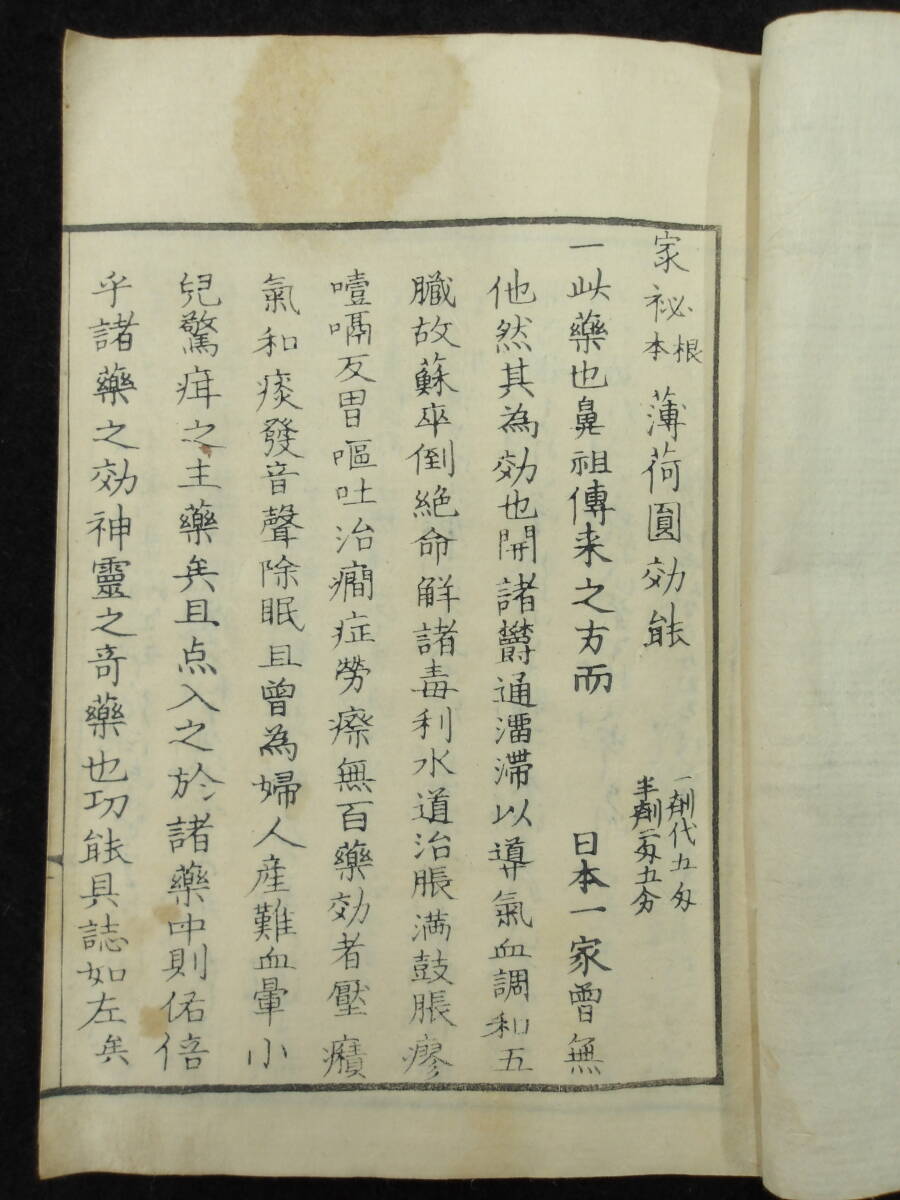 家祕根本薄荷圓効能 一劑代五匁 半劑二匁五分
一此藥也鼻祖傳来之方而 日本一家曽無
他然其為効也開諸欝通澑滞以導氣血調和五
臓故蘇卒倒絶命解諸毒利水道治脹満鼓脹瘳
噎嗝反胃嘔吐治癇症勞瘵無百藥効者壓癪
氣和痰發音聲除眠且曽為婦人産難血暈小
兒驚疳之主藥矣且点入之於諸藥中則佑倍
乎諸藥之効神靈之竒藥也功能具誌如左矣